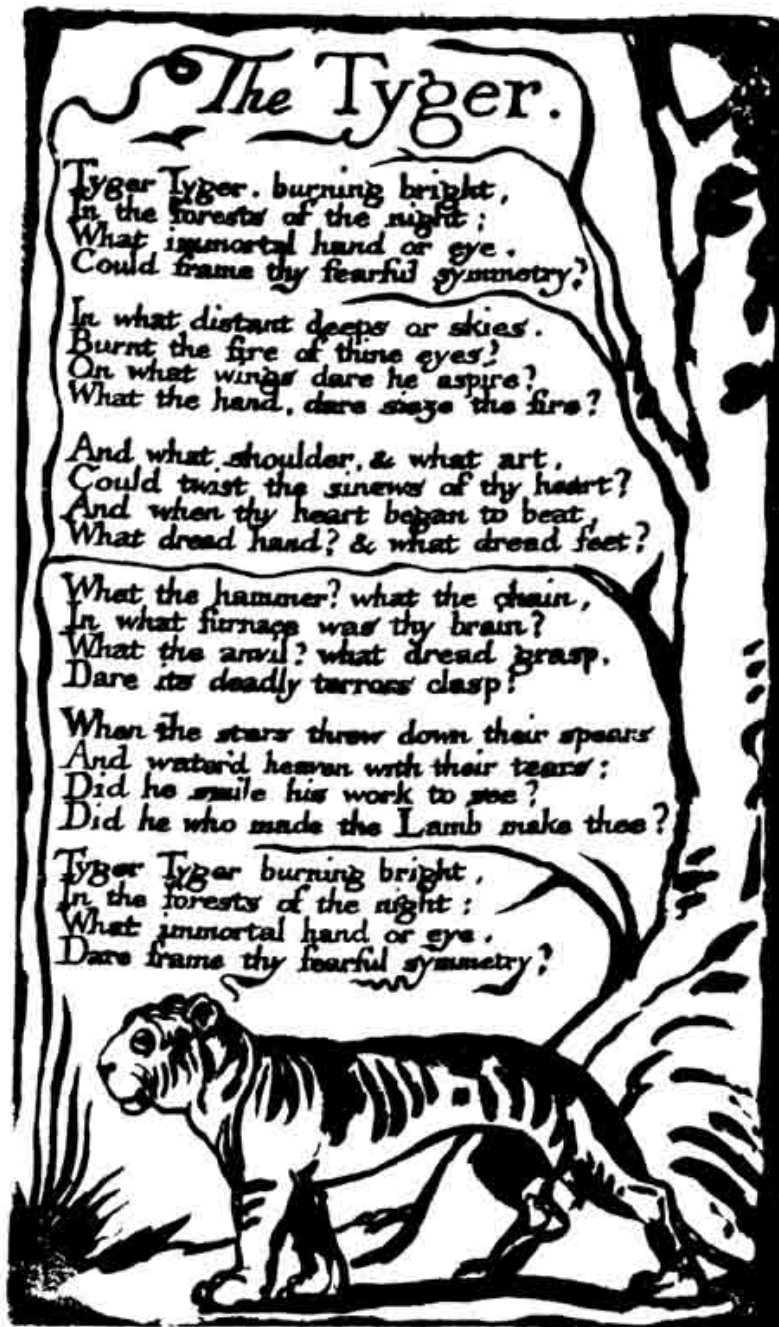 The Tyger.
Tyger Tyger. burning bright,
In the forests of the night;
What immortal hand or eye.
Could frame thy fearful symmetry?
In what distant deeps or skies.
Burnt the fire of thine eyes?
On what wings dare he aspire?
What the hand, dare sieze the fire?
And what shoulder, & what art,
Could twist the sinews of thy heart?
And when thy heart began to beat,
What dread hand? & what dread feet?
What the hammer? what the chain,
In what furnace was thy brain?
What the anvil? what dread grasp,
Dare its deadly terrors clasp!
When the stars threw down their spears
And water'd heaven with their tears:
Did he smile his work to see?
Did he who made the Lamb make thee?
Tyger Tyger burning bright,
In the forests of the night:
What immortal hand or eye,
Dare frame thy fearful symmetry?